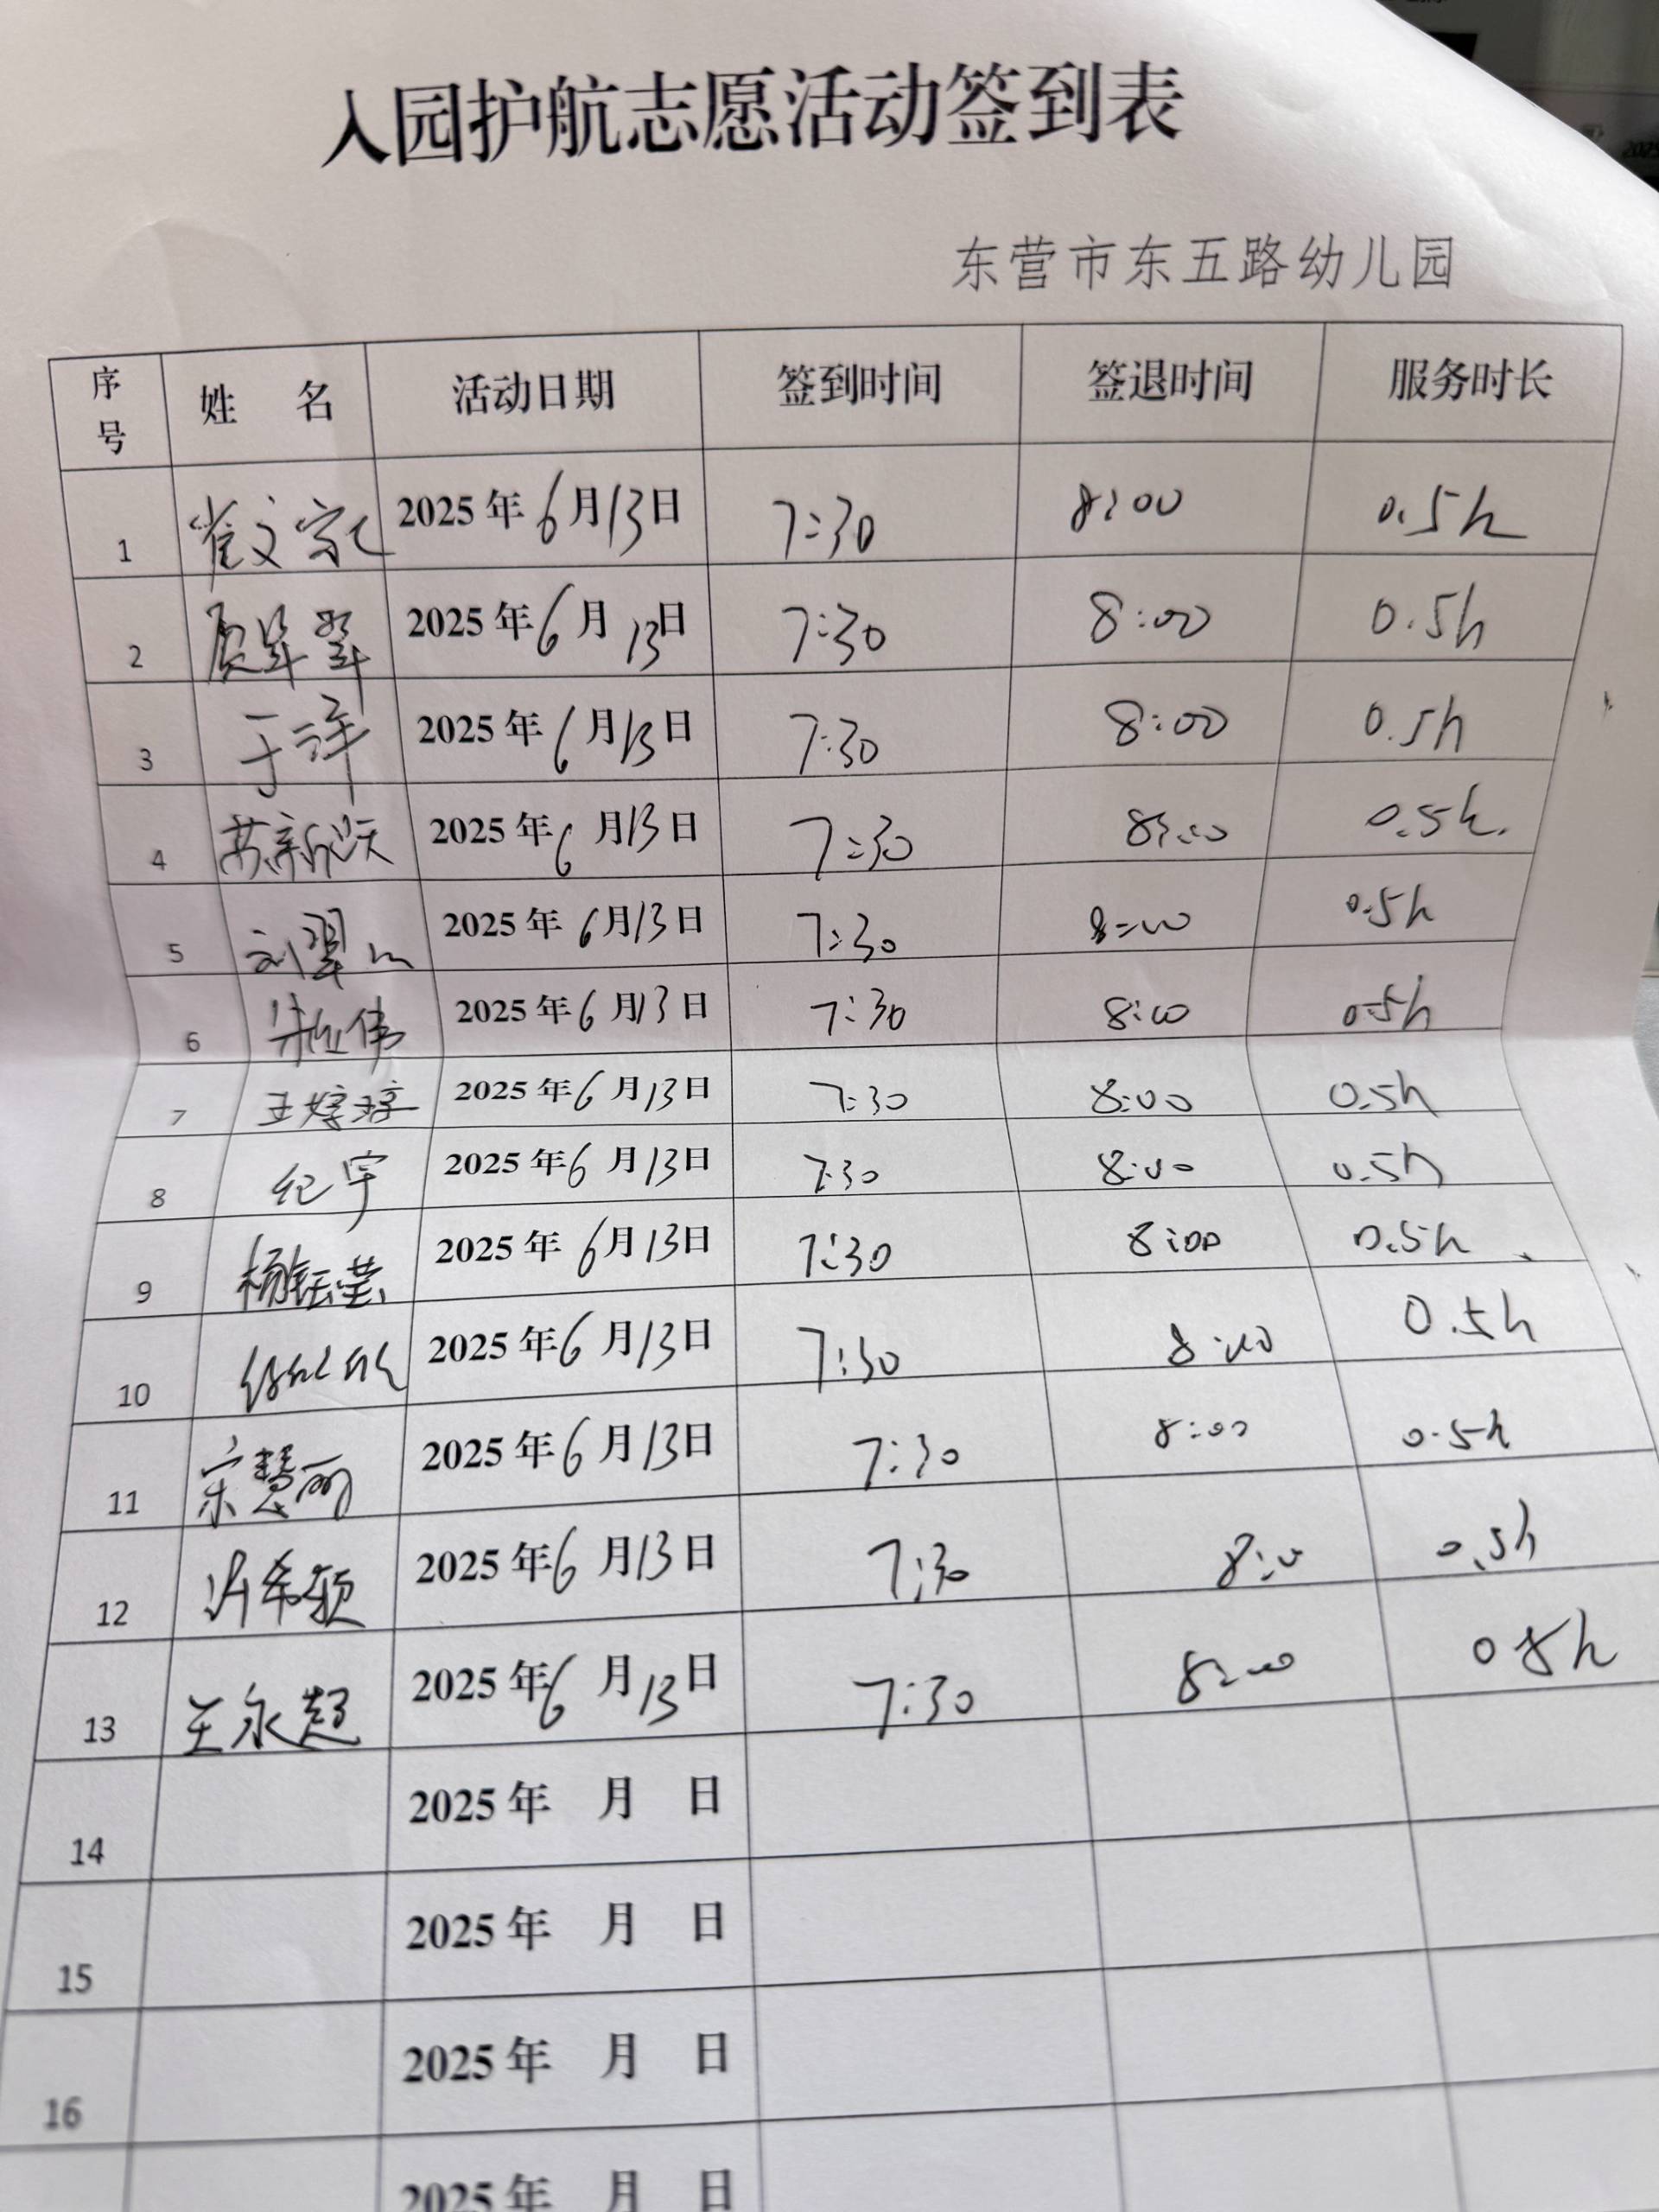 入园护航志愿活动签到表
东营市东五路幼儿园
序号 姓 名 活动日期 签到时间 签退时间 服务时长
1 崔文 2025年6月13日 7:30 8:00 0.5h
2 2025年6月13日 7:30 8:00 0.5h
3 于洋 2025年6月13日 7:30 8:00 0.5h
4 苏 2025年6月13日 7:30 8:00 0.5h.
5 刘翠 2025年6月13日 7:30 8:00 0.5h
6 伟 2025年6月13日 7:30 8:00 0.5h
7 王婷婷 2025年6月13日 7:30 8:00 0.5h
8 纪宇 2025年6月13日 7:30 8:00 0.5h
9 杨钰莹 2025年6月13日 7:30 8:00 0.5h
10 2025年6月13日 7:30 8:00 0.5h
11 宋慧丽 2025年6月13日 7:30 8:00 0.5h
12 许希颖 2025年6月13日 7:30 8:00 0.5h
13 王永超 2025年6月13日 7:30 8:00 0.5h
14 2025年 月 日
15 2025年 月 日
16 2025年 月 日
2025年 月 日